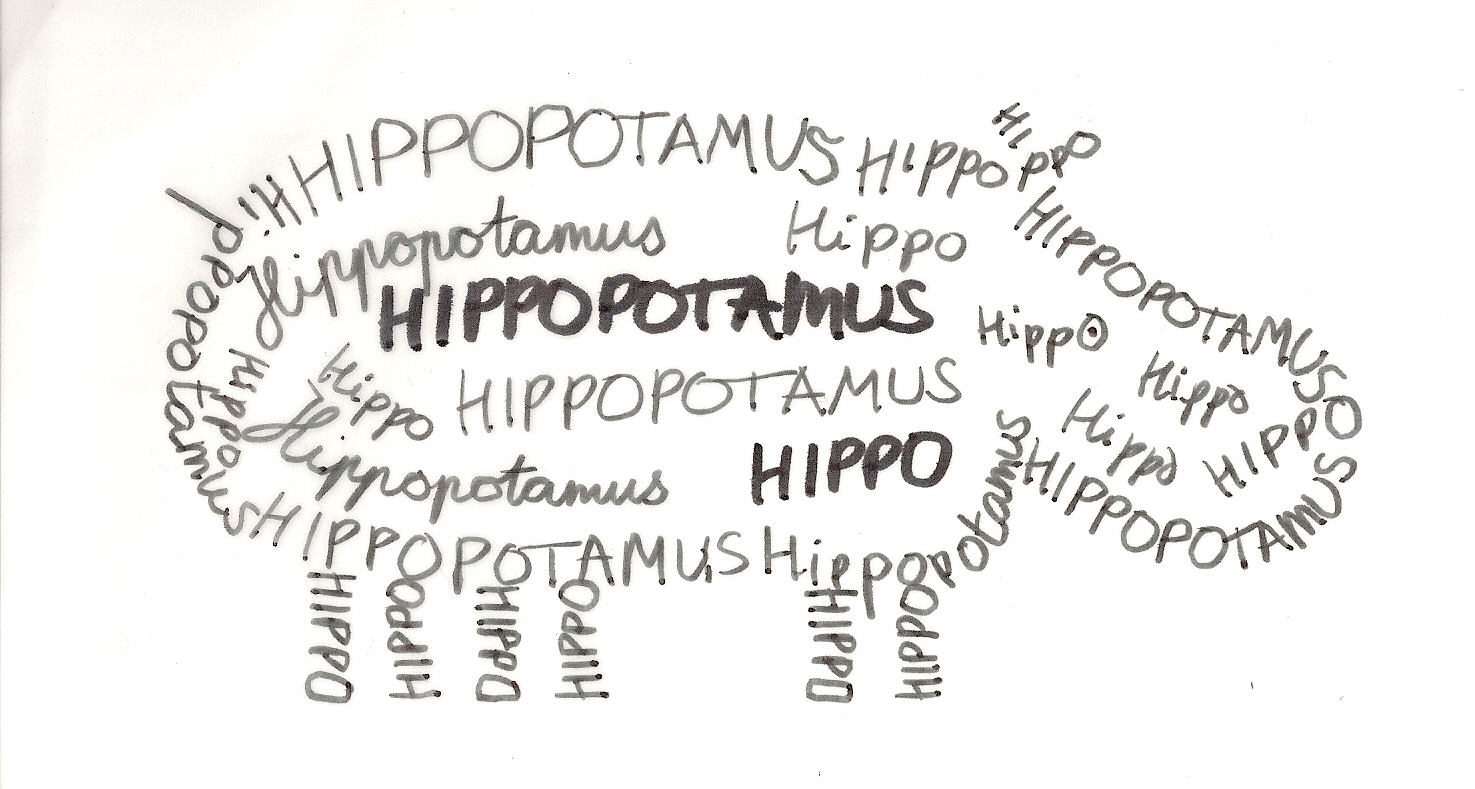 HIPPO
HIPPOPOTAMUS
HIPPO
Hippopotamus
Hippopotamus
Hippo
HIPPOPOTAMUS
HIPPOPOTAMUS
HippO
Hippo
Hippo
HIPPOPOTAMUS
Hippo
Hippo
HIPPO
Hippopotamus
HIPPO
HIPPOPOTAMUS
HIPPOPOTAMUS
Hippopotamus
HIPPO
HIPPO
HIPPO
HIPPO
HIPPO
HIPPO